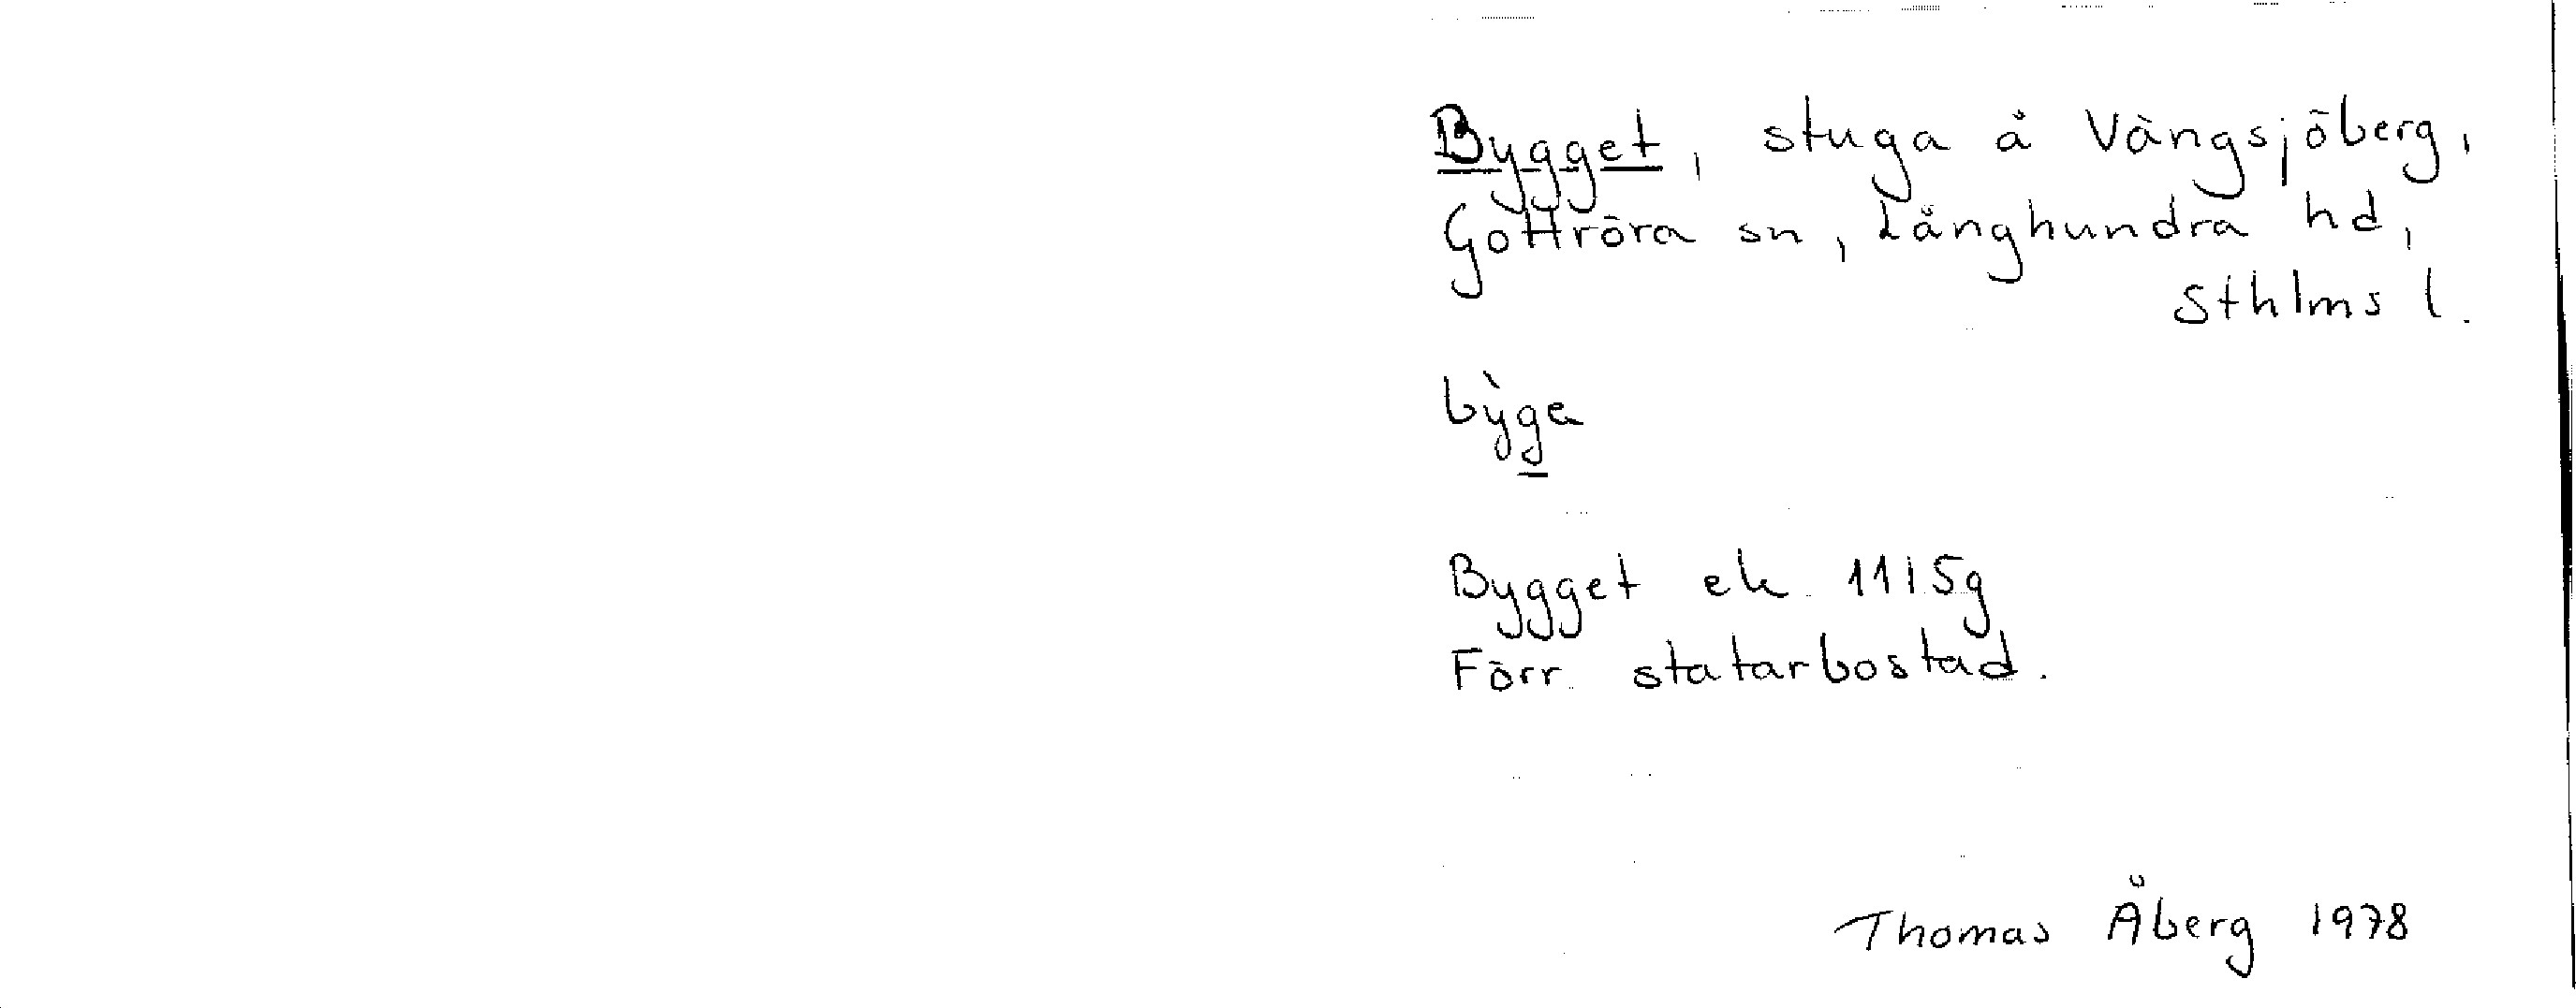 Bygget, stuga å Vängsjöberg,
Gottröra sn, Långhundra hd,
Sthlms l.
bỳga
Bygget ek 11I5g
Förr statarbostad.
Thomas Åberg 1978